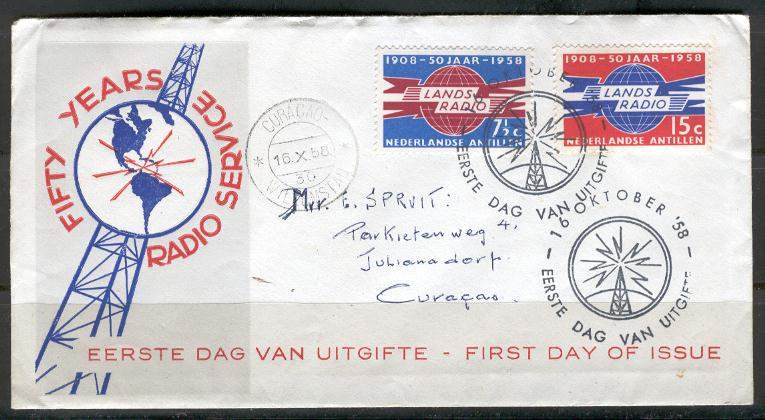 FIFTY YEARS
RADIO SERVICE
CURAÇAO-
* 16.X.58 *
WILLEMSTAD
1908-50 JAAR-1958
LANDS
RADIO
7½c
NEDERLANDSE ANTILLEN
1908-50 JAAR-1958
LANDS
RADIO
15c
NEDERLANDSE ANTILLEN
EERSTE DAG VAN UITGIFTE
Mr. E. SPRUIT:
Parkietenweg 4,
Julianadorp.
Curaçao.
- 16 OKTOBER '58 -
EERSTE DAG VAN UITGIFTE
EERSTE DAG VAN UITGIFTE - FIRST DAY OF ISSUE